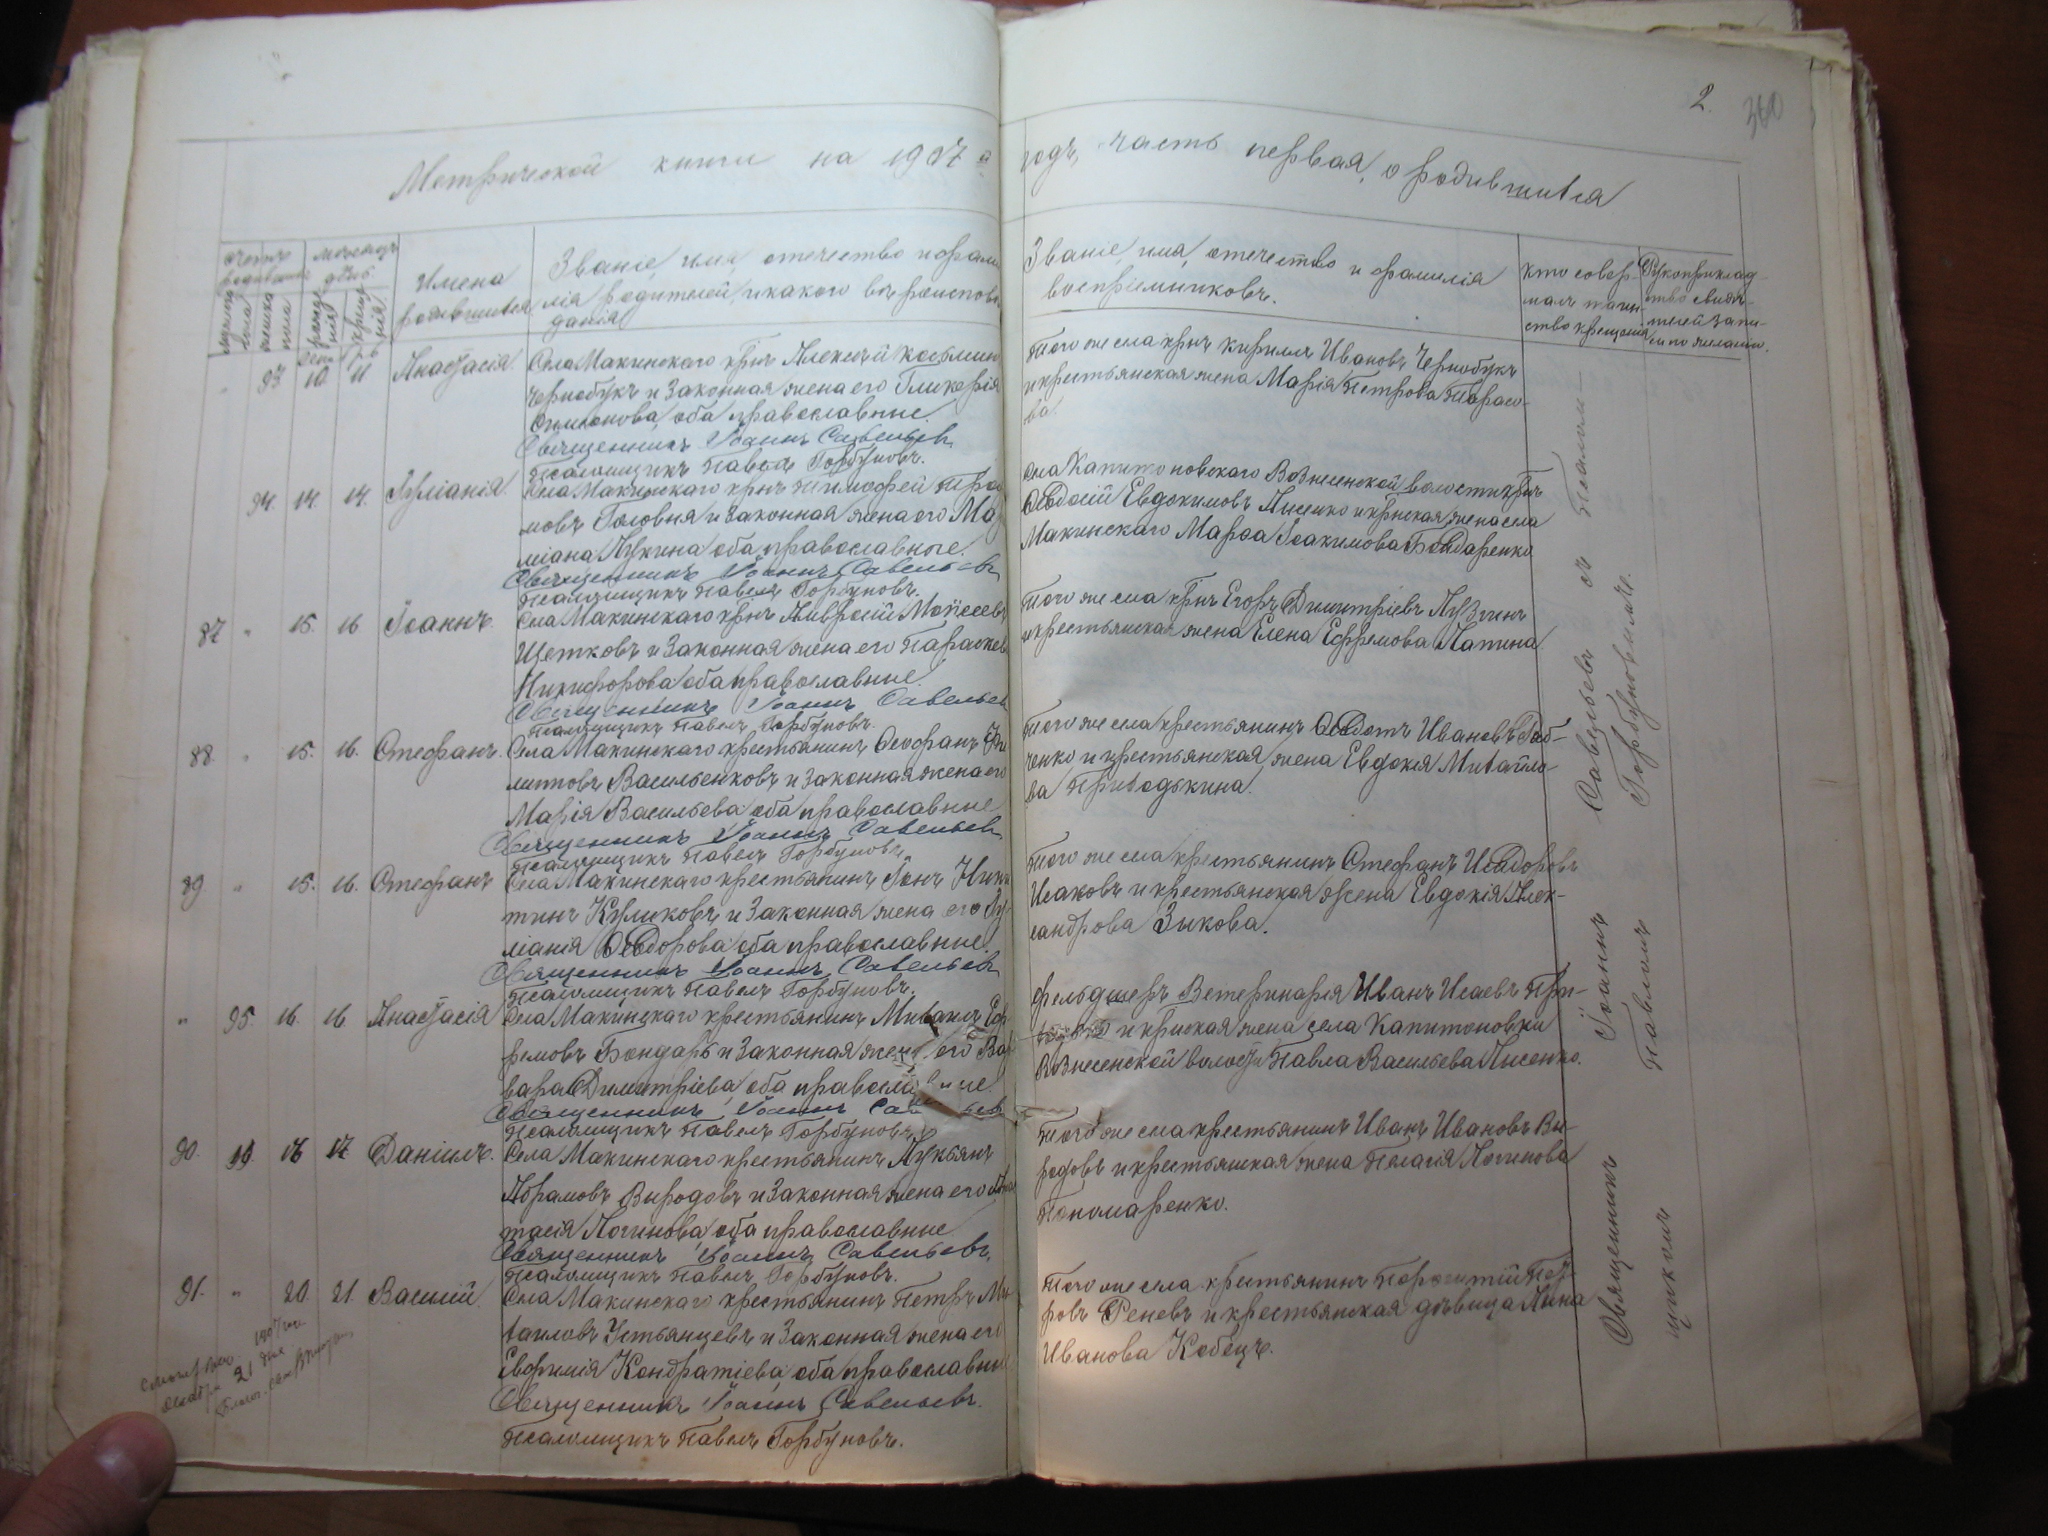 2.
360
Метрической книги на 1907 й
годъ, часть первая, о родившихся
Имена родившихся
Званіе, имя, отечество и фами-
лія родителей, и какого вѣроиспове-
данія
Званіе, имя, отечество и фамилія
воспріемниковъ.
Кто совер-
шалъ таин-
ство крещенія
Рукоприклад-
ство свидѣ-
телей запи-
си по желанію.
" 93 10. 11. Анастасія
Села Макинскаго крнъ Алексій Косьмин
Чернобукъ и законная жена его Гликерія
Симеонова, оба православные.
Священникъ Іоаннъ Савельевъ
Псаломщикъ Павелъ Горбуновъ.
Того же села крнъ Кириллъ Ивановъ Чернобукъ
и крестьянская жена Марія Петрова Тарасо-
ва.
94. 14. 14. Іуліанія.
Села Макинскаго крнъ Тимофей
мовъ Головня и законная жена его Ма
міана Лукина оба православные.
Священникъ Іоаннъ Савельевъ
Псаломщикъ Павелъ Горбуновъ.
Села Капитоновскаго Вознесенской волости крнъ
Ѳеодосій Евдокимовъ Лисенко и крнская жена села
Макинскаго Марѳа Іоакимова Бондаренко
87 " 15. 16 Іоаннъ.
Села Макинскаго крнъ Амвросій Моисеевъ
Щетковъ и законная жена его Параскев
Никифорова оба православные.
Священникъ Іоаннъ Савельев
Псаломщикъ Павелъ Горбуновъ.
Того же села крнъ Егоръ Димитріевъ Лузгинъ
и крестьянская жена Елена Ефремова Лапина
88. " 15. 16. Стефанъ.
Села Макинскаго крестьянинъ Ѳеофанъ Фи
липповъ Васильенковъ и законная жена его
Марія Васильева оба православные
Священникъ Іоаннъ Савельевъ
Псаломщикъ Павелъ Горбуновъ.
Того же села крестьянинъ Ѳедотъ Ивановъ Баб-
ченко и крестьянская жена Евдокія Михайло-
ва Приходькина.
89. " 15. 16. Стефанъ
Села Макинскаго крестьянинъ Іонъ Ники
тинъ Куликовъ и законная жена его Іу
ліанія Ѳеодорова оба православные.
Священникъ Іоаннъ Савельевъ
Псаломщикъ Павелъ Горбуновъ.
Того же села крестьянинъ Стефанъ Исидоровъ
Исаковъ и крестьянская жена Евдокія Алек-
сандрова Зыкова.
" 95. 16. 16. Анастасія
Села Макинскаго крестьянинъ Михаилъ Еф
ремовъ Бондарь и законная жена его Вар
вара Димитріева оба православные.
Священникъ Іоаннъ Савельевъ
Псаломщикъ Павелъ Горбуновъ.
Фельдшеръ Ветеринарія Иванъ Исаевъ При-
и крнская жена села Капитоновки
Вознесенской волости Павла Васильева Лисенко.
90. 16 17 Даніилъ.
Села Макинскаго крестьянинъ Лукьянъ
Абрамовъ Выродовъ и законная жена его Анас
тасія Логинова оба православные
Священникъ Іоаннъ Савельевъ.
Псаломщикъ Павелъ Горбуновъ.
Того же села крестьянинъ Иванъ Ивановъ Вы-
родовъ и крестьянская жена Пелагія Логинова
Пономаренко.
91. " 20. 21. Василій.
Села Макинскаго крестьянинъ Петръ Ми
хаиловъ Устьянцевъ и законная жена его
Евфимія Кондратіева оба православны
Священникъ Іоаннъ Савельевъ.
Псаломщикъ Павелъ Горбуновъ.
Того же села крестьянинъ Терентій Пет-
ровъ Реневъ и крестьянская дѣвица Анна
Иванова Кобецъ.
декабря 21 дня 1907 года
Священникъ Іоаннъ Савельевъ съ Псалом-
щикомъ Павломъ Горбуновымъ.